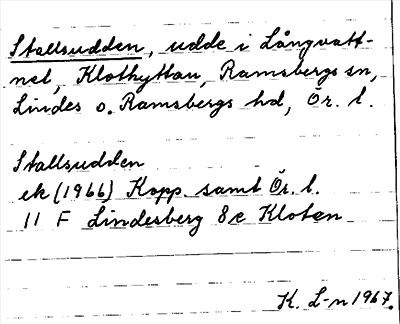 Stallsudden, udde i Långvatt-
net, Klothyttan, Ramsbergs sn,
Lindes o. Ramsbergs hd, Ör. l.
Stallsudden
ek (1966) Kopp. samt Ör. l.
11 F Lindesberg 8e Kloten
K. L-n 1967.